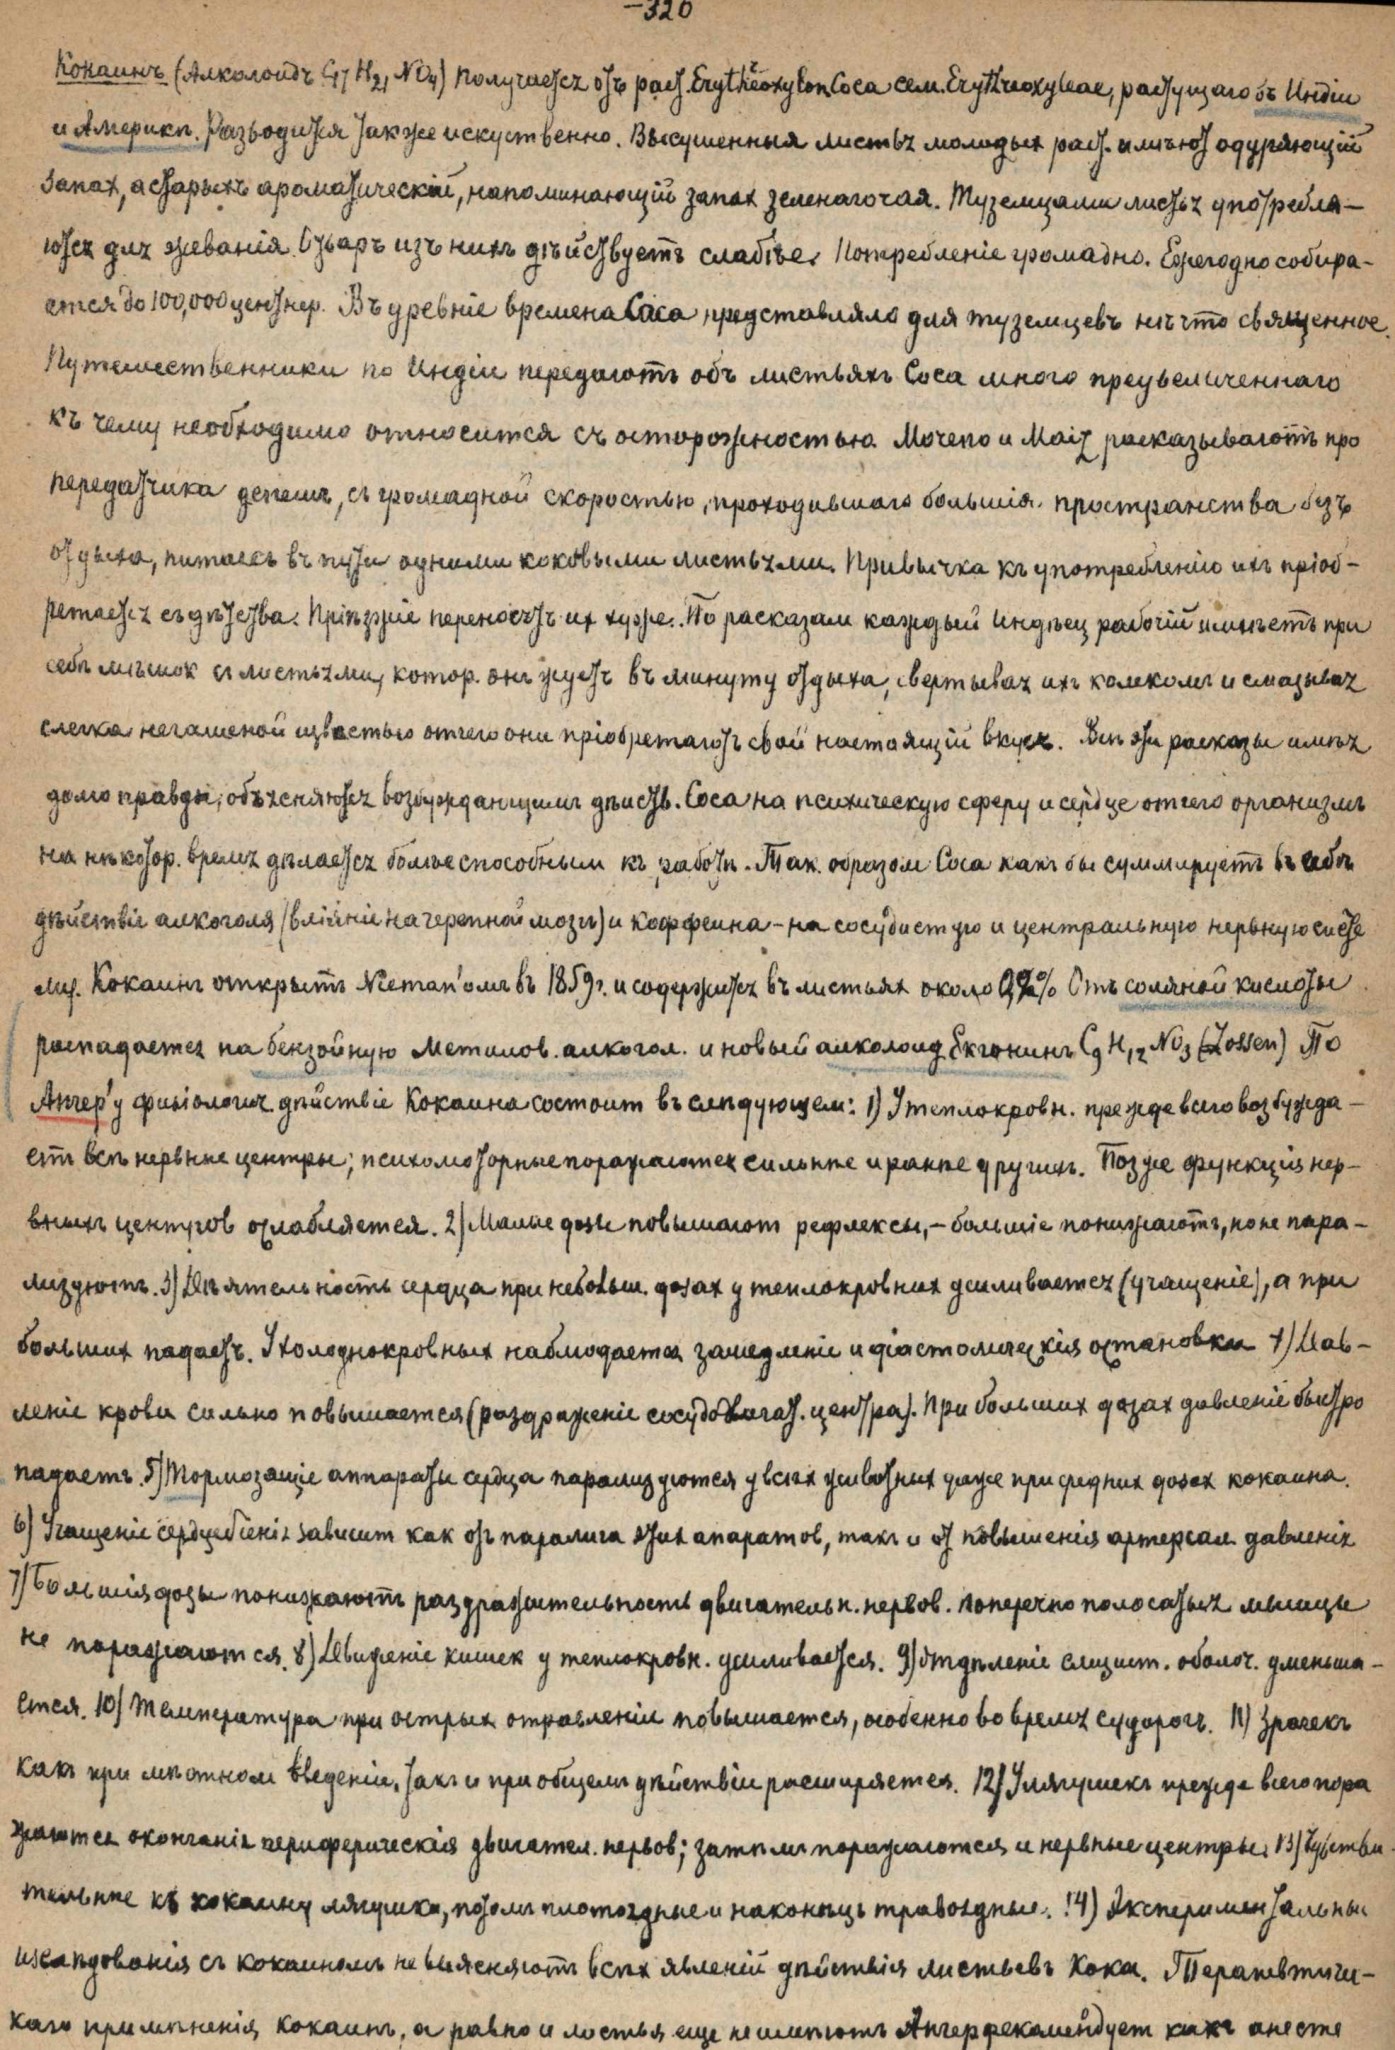 –320
Кокаинъ (Алколоидъ C17 H21 NO4) получается отъ раст. Erythreoxylon Coca сем. Erythreoxyleae, растущаго въ Индіи
и Америкѣ. Разводится также искуственно. Высушенныя листья молодых раст. имѣют одуряющій
запах, а старыхъ ароматическій, напоминающій запах зеленаго чая. Туземцами листья употребля–
ются для жеванія. Отваръ изъ нихъ дѣйствуетъ слабѣе. Потребленіе громадно. Ежегодно собира–
ется до 100,000 центнер. Въ древніе времена Coca представляло для туземцевъ нѣчто священное.
Путешественники по Индіи передаютъ объ листьяхъ Coca много преувеличеннаго
къ чему необходимо относится съ осторожностью. Морено и Maiz расказываютъ про
передатчика депешъ, съ громадной скоростью, проходившаго большія пространства безъ
отдыха, питаясь въ пути одними коковыми листьями. Привычка къ употребленію ихъ пріоб–
ретается съ дѣтства. Пріѣзжіе переносятъ их хуже. По расказам каждый Индѣец рабочій имѣетъ при
себѣ мѣшок съ листьями, котор. онъ жуетъ въ минуту отдыха, свертывая ихъ комкомъ и смазывая
слегка негашеной известью отчего они пріобретаютъ свой настоящій вкусъ. Всѣ эти расказы имѣя
долю правды, объясняются возбуждающимъ дѣйств. Coca на психическую сферу и сердце отчего организмъ
на нѣкотор. время дѣлается болѣе способным къ работѣ. Так. образом Coca какъ бы суммируетъ въ себѣ
дѣйствіе алкоголя (вліяніе на черепной мозгъ) и коффеина – на сосудистую и центральную нервную систе
му. Кокаинъ открытъ Nieman'омъ въ 1859 г. и содержится въ листьях около 0,2% Отъ соляной кислоты
распадается на бензойную метилов. алкогол. и новый алколоид Екгонинъ C9 H12 NO3 (Lossen) По
Анчер'у физіологич. дѣйствіе Кокаина состоит въ слѣдующем: 1) У теплокровн. прежде всего возбужда–
етъ всѣ нервные центры; психомоторные поражаются сильнѣе и ранѣе другихъ. Позже функція нер–
вныхъ центров ослабляется. 2) Малые дозы повышают рефлексы, – большіе понижаютъ, но не пара–
лизуютъ. 3) Дѣятельность сердца при небольш. дозах у теплокровных усиливается (учащеніе), а при
больших падаетъ. У холоднокровных наблюдается замедленіе и діастолическія остановки 4) Дав–
леніе крови сильно повышается (раздраженіе сосудодвигат. центра). При больших дозах давленіе быстро
падаетъ. 5) Тормозащіе аппараты сердца парализуются у всѣх животных даже при средних дозах кокаина.
6) Учащеніе сердцебіенія зависит как отъ паралича этих апаратов, такъ и от повышенія артеріал. давленія
7) Большія дозы понижаютъ раздражительность двигательн. нервов. Поперечно полосатыя мышцы
не поражаются. 8) Движеніе кишек у теплокровн. усиливается. 9) Отдѣленіе слизист. оболоч. уменьша–
ется. 10) Температура при острых отравленіи повышается, особенно во время судорогъ. 11) Зрачекъ
какъ при мѣстном введеніи, такъ и при общемъ дѣйствіи расширяется. 12) У лягушекъ прежде всего пора
жаются окончанія периферическія двигател. нервов; затѣмъ поражаются и нервные центры. 13) Чувстви–
тельнѣе къ кокаину лягушка, потомъ плотоядные и наконецъ травоядные. 14) Эксперименталь­ные
изслѣдованія съ кокаиномъ не выясняютъ всѣх явленій дѣйствія листьевъ Кока. Терапевтиче–
каго примѣненія кокаинъ, а равно и листья еще не имѣютъ Анчер рекомендует какъ анесте